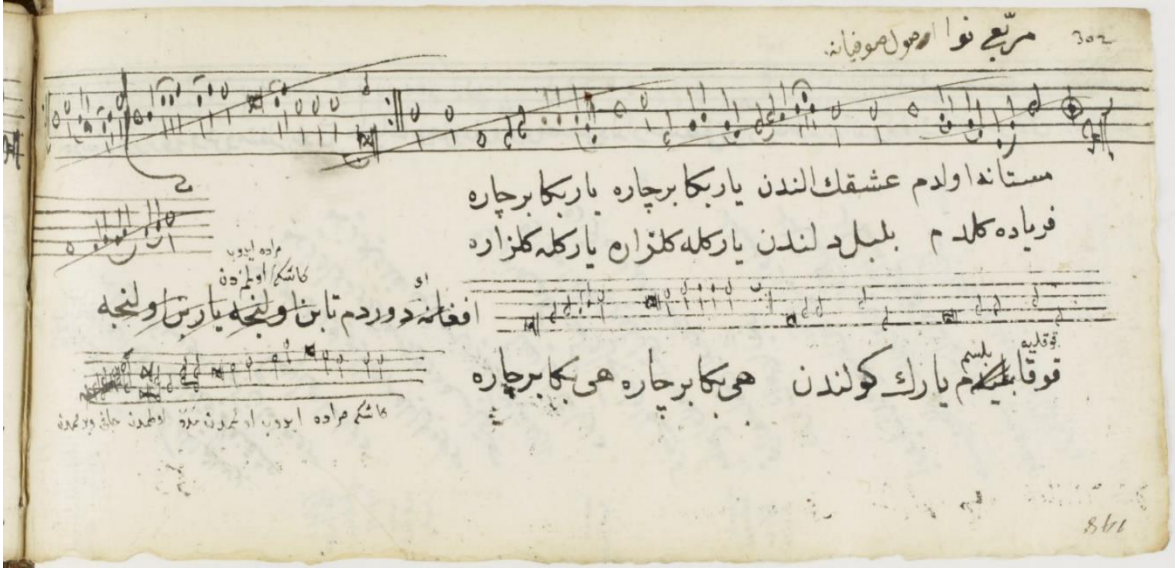 302
مربّع نوا اصول صوفیانه
مستانه اولدم عشقك الندن یار بكا بر چاره یار بكا بر چاره
فریاده كلدم بلبل دلندن یار كله كلزاره یار كله كلزاره
مراده ایروب
كاشكم اولمزدن
افغانه دوردم تا بن اولنجه یار بن اولنجه
قوقلیه بلسم
قوقا م یارك كولندن هی بكا بر چاره هی بكا بر چاره
كاشكم مراده ایروب اولمزدن
148